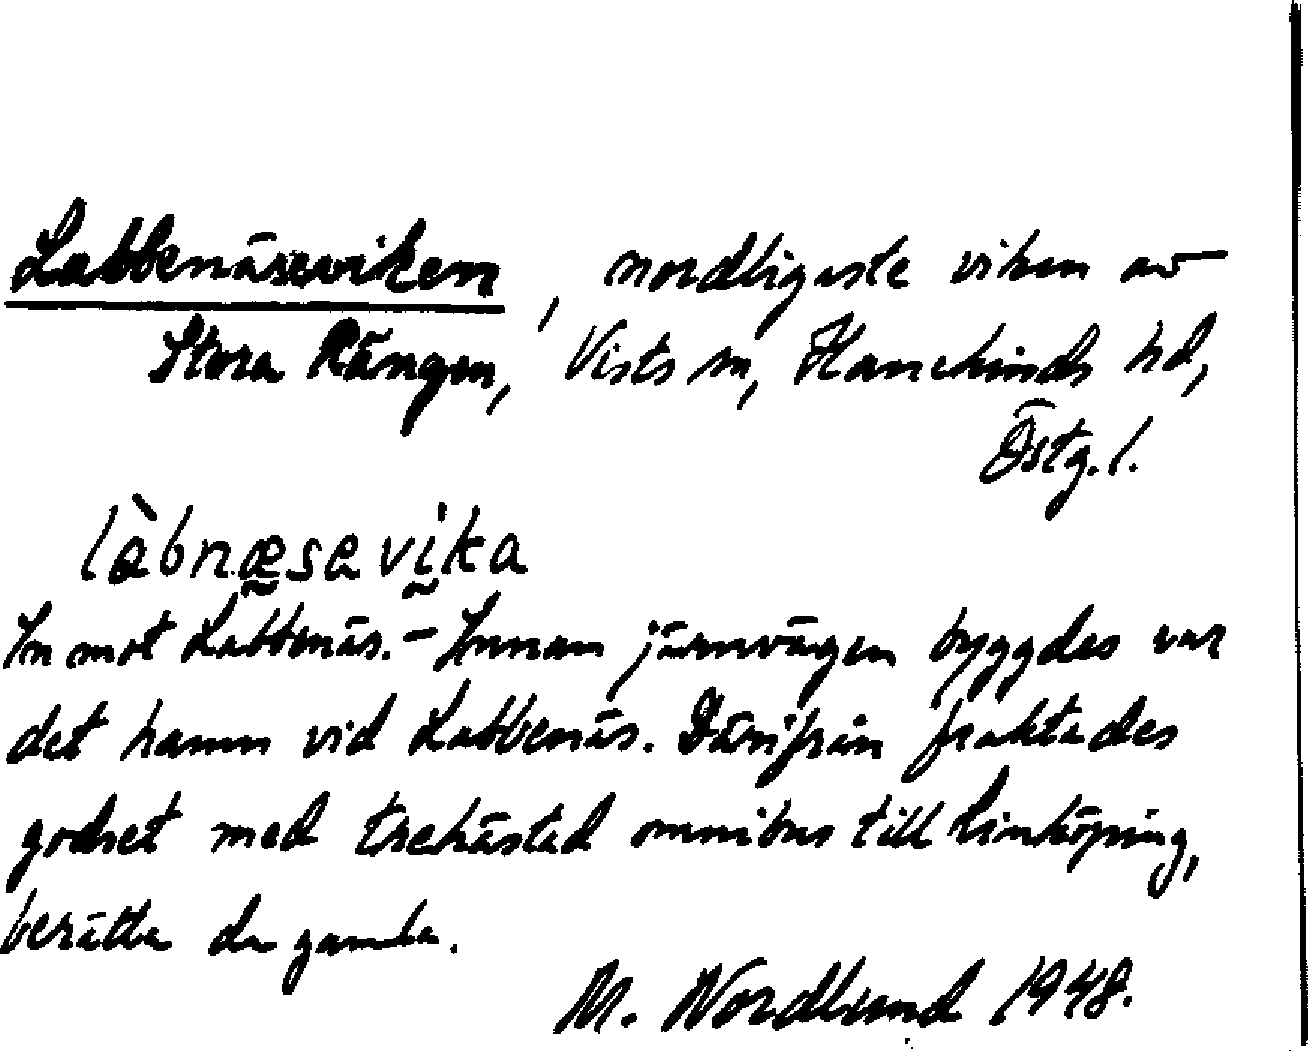 Labbenäseviken, nordligaste viken av
Stora Rängen, Vists sn, Hanekinds hd,
Östg. l.
làbnæsevika
In mot Labbenäs. – Innan järnvägen byggdes var
det hamn vid Labbenäs. Därifrån fraktades
godset med trehästad omnibus till Linköping,
berätta de gamla.
M. Nordlund 1948.